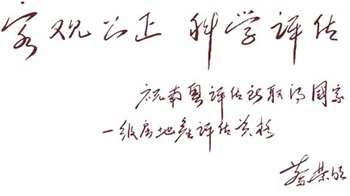 客观公正 科学评估
祝南粤评估所取得国家
一级房地产评估资格